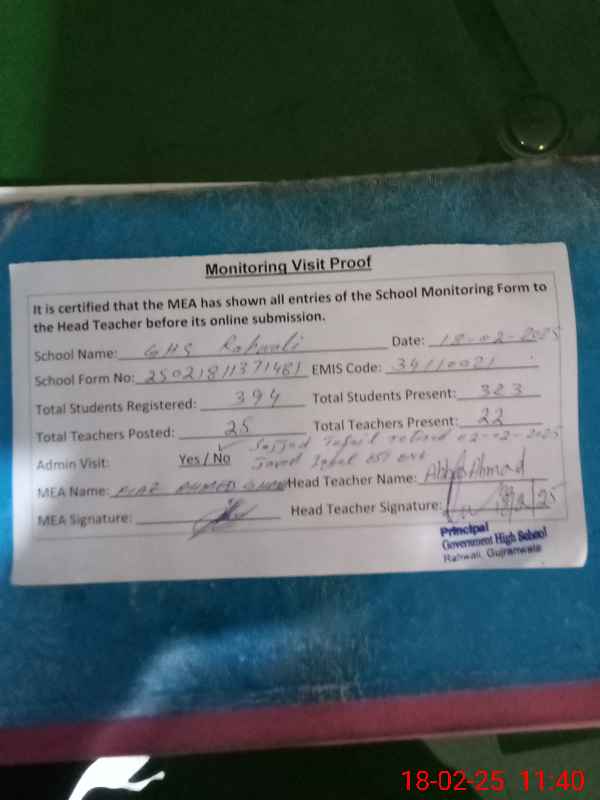 Monitoring Visit Proof
It is certified that the MEA has shown all entries of the School Monitoring Form to
the Head Teacher before its online submission.
School Name: GHS Rahwali Date: 18-02-2025
School Form No: 25021811371481 EMIS Code: 34110021
Total Students Registered: 394 Total Students Present: 323
Total Teachers Posted: 25 Total Teachers Present: 22
Sajjad Tufail retired 02-02-2025
Admin Visit: Yes / No ✓ Javed Iqbal EST
MEA Name: AHMED Head Teacher Name: Ahmad
MEA Signature: Head Teacher Signature:
Principal
Government High School
Rahwali, Gujranwala
18-02-25 11:40